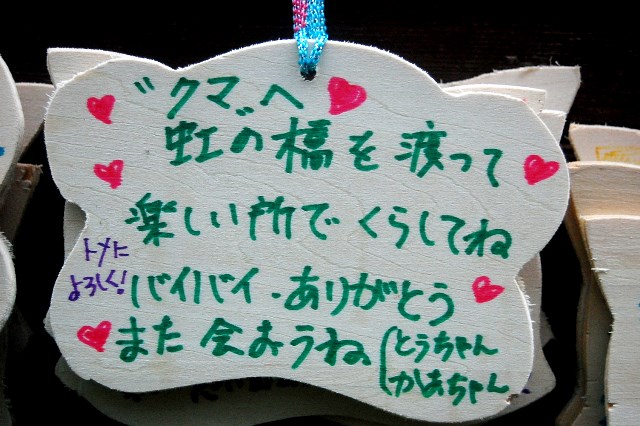 "クマ"へ
虹の橋を渡って
楽しい所でくらしてね
トメに
よろしく!
バイバイ・ありがとう
また会おうね
とうちゃん
かあちゃん